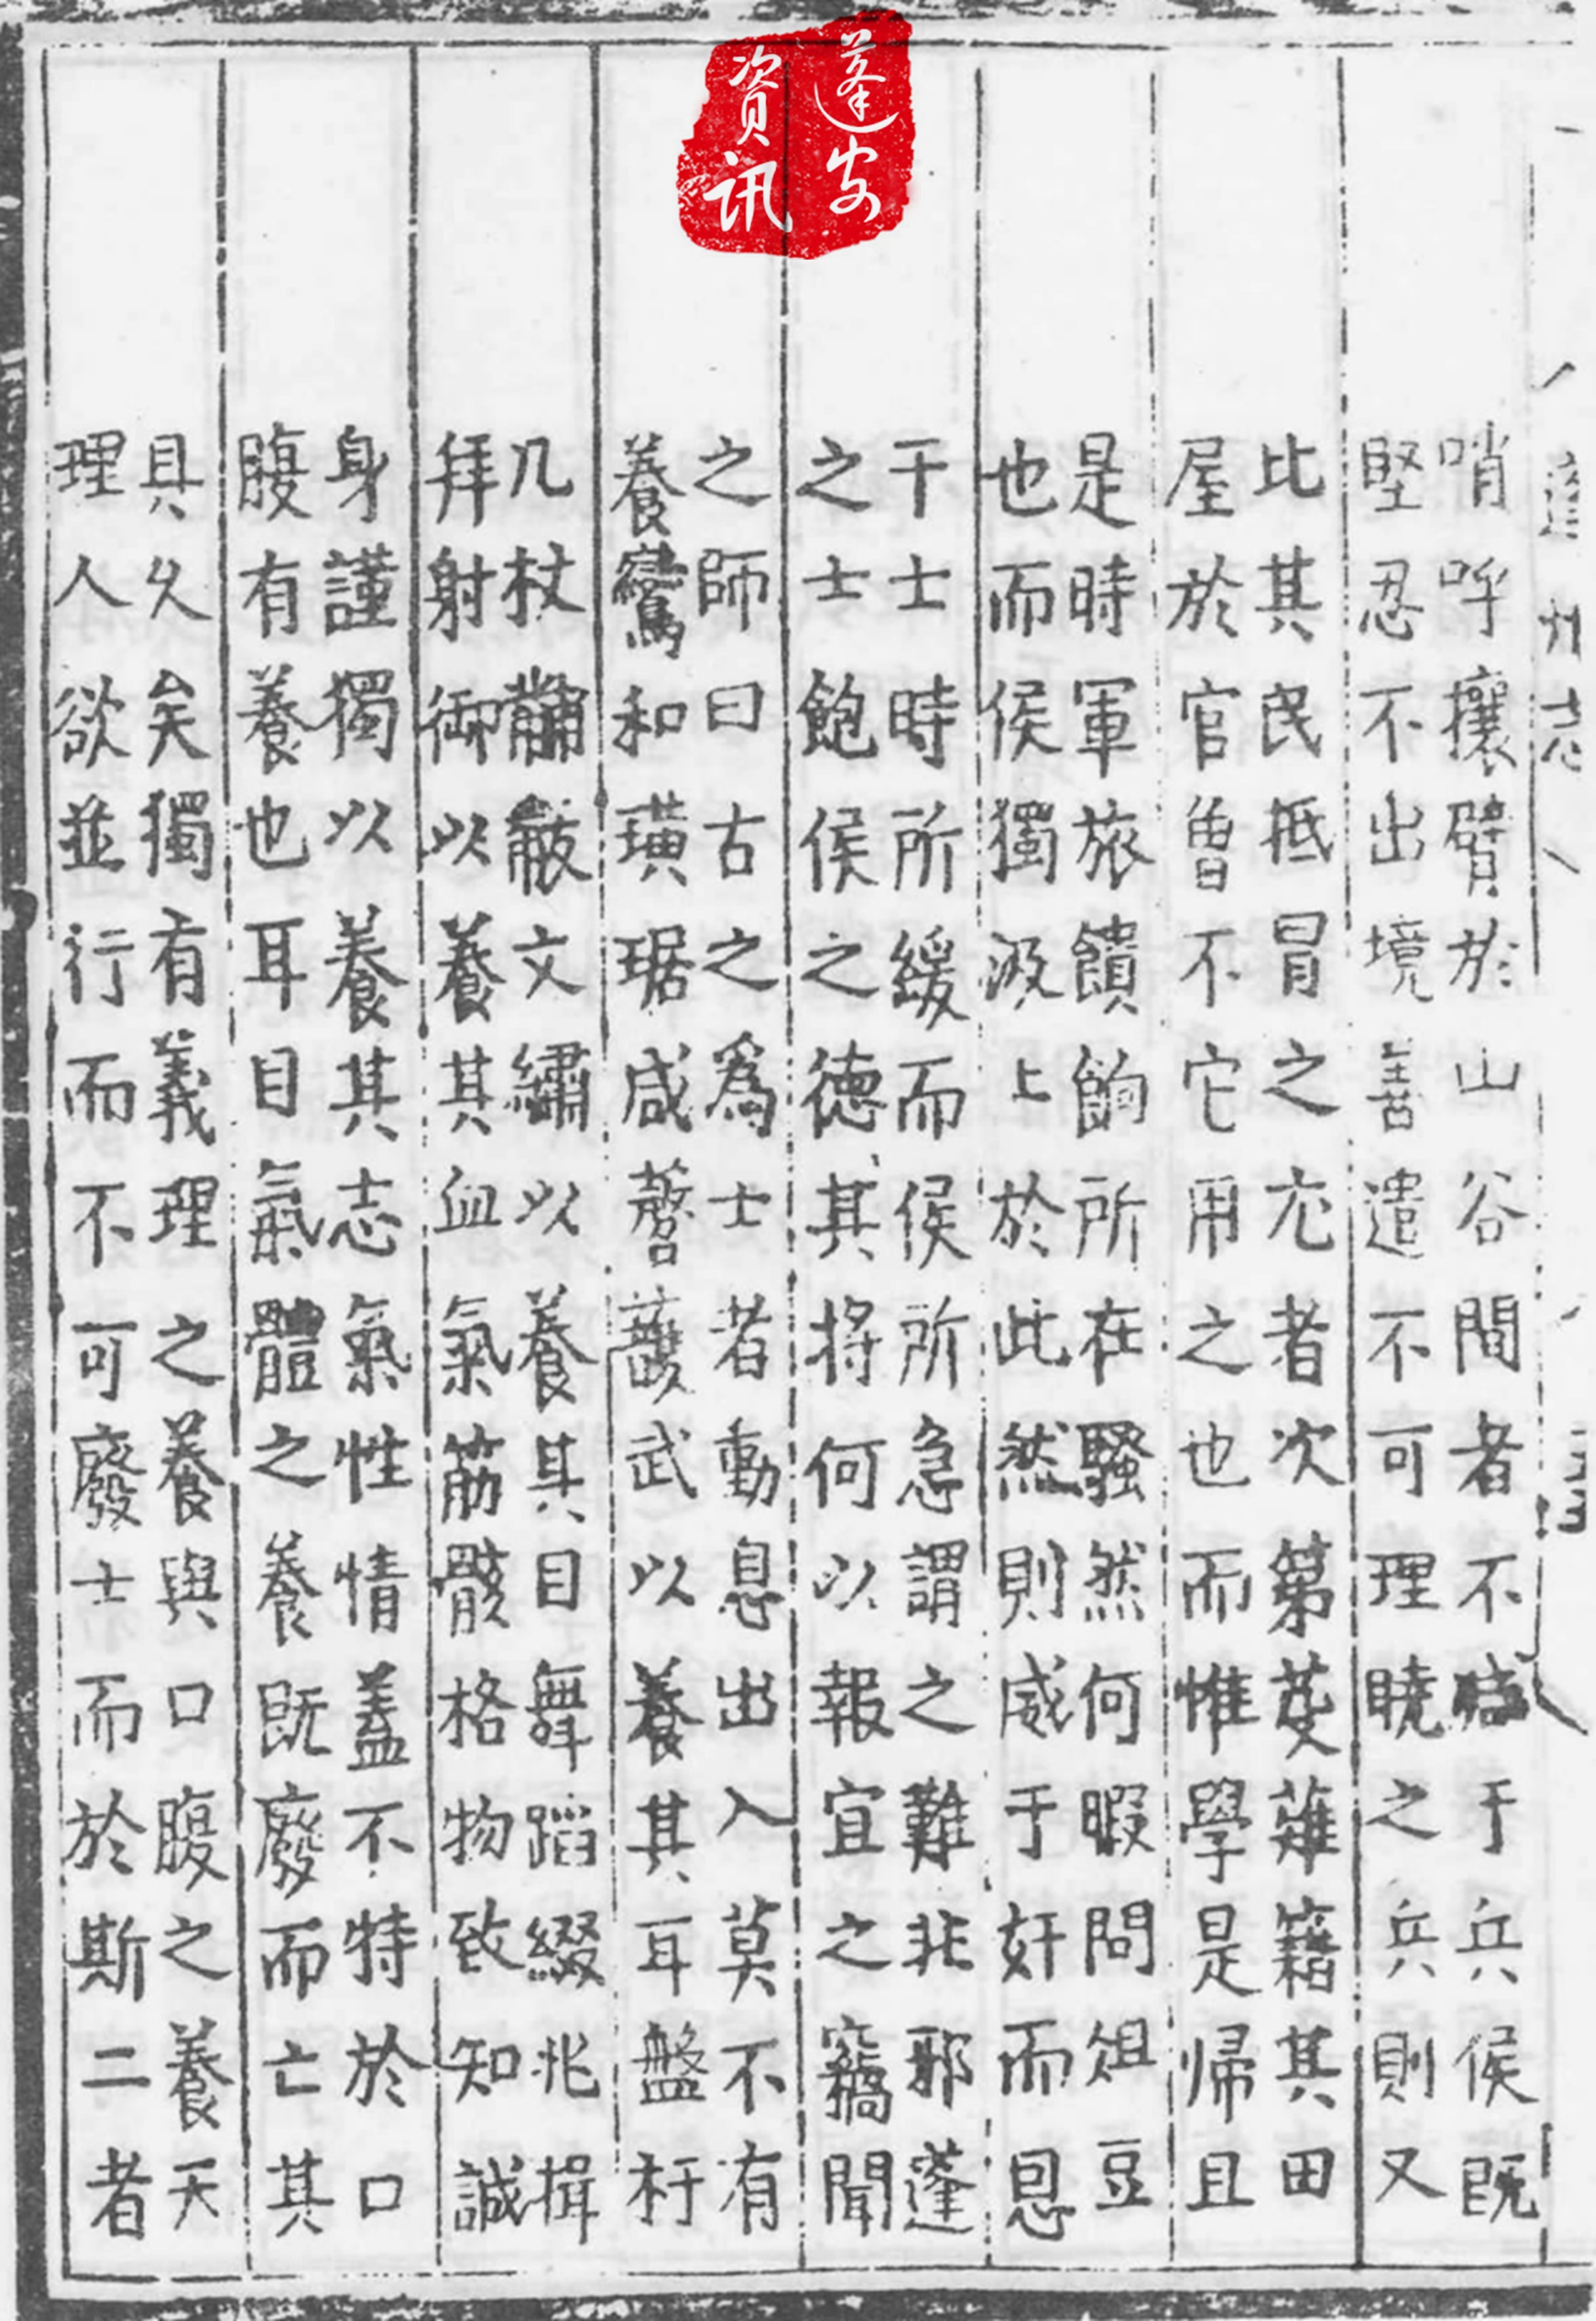 蓬安
资讯
蓬州志
哨呼攘臂於山谷間者不于兵侯既
堅忍不出境善遣不可理曉之兵則又
比其民抵冒之尤者次第芟薙籍其田
屋於官曾不它用之也而惟學是帰且
是時軍旅饋餉所在騷然何暇問俎豆
也而侯獨汲上於此然則威于奸而恩
干士時所緩而侯所急謂之難非邪蓬
之士飽侯之德其将何以報宜之竊聞
之師曰古之爲士者動息出入莫不有
養鸞和璜琚咸䪫頀武以養其耳盤杅
几杖黼黻文繡以養其目舞蹈綴兆揖
拜射御以養其血氣筋骸格物致知誠
身謹獨以養其志氣性情蓋不特於口
腹有養也耳目氣體之養既廢而亡其
具久矣獨有義理之養與口腹之養天
理人欲並行而不可廢士而於斯二者